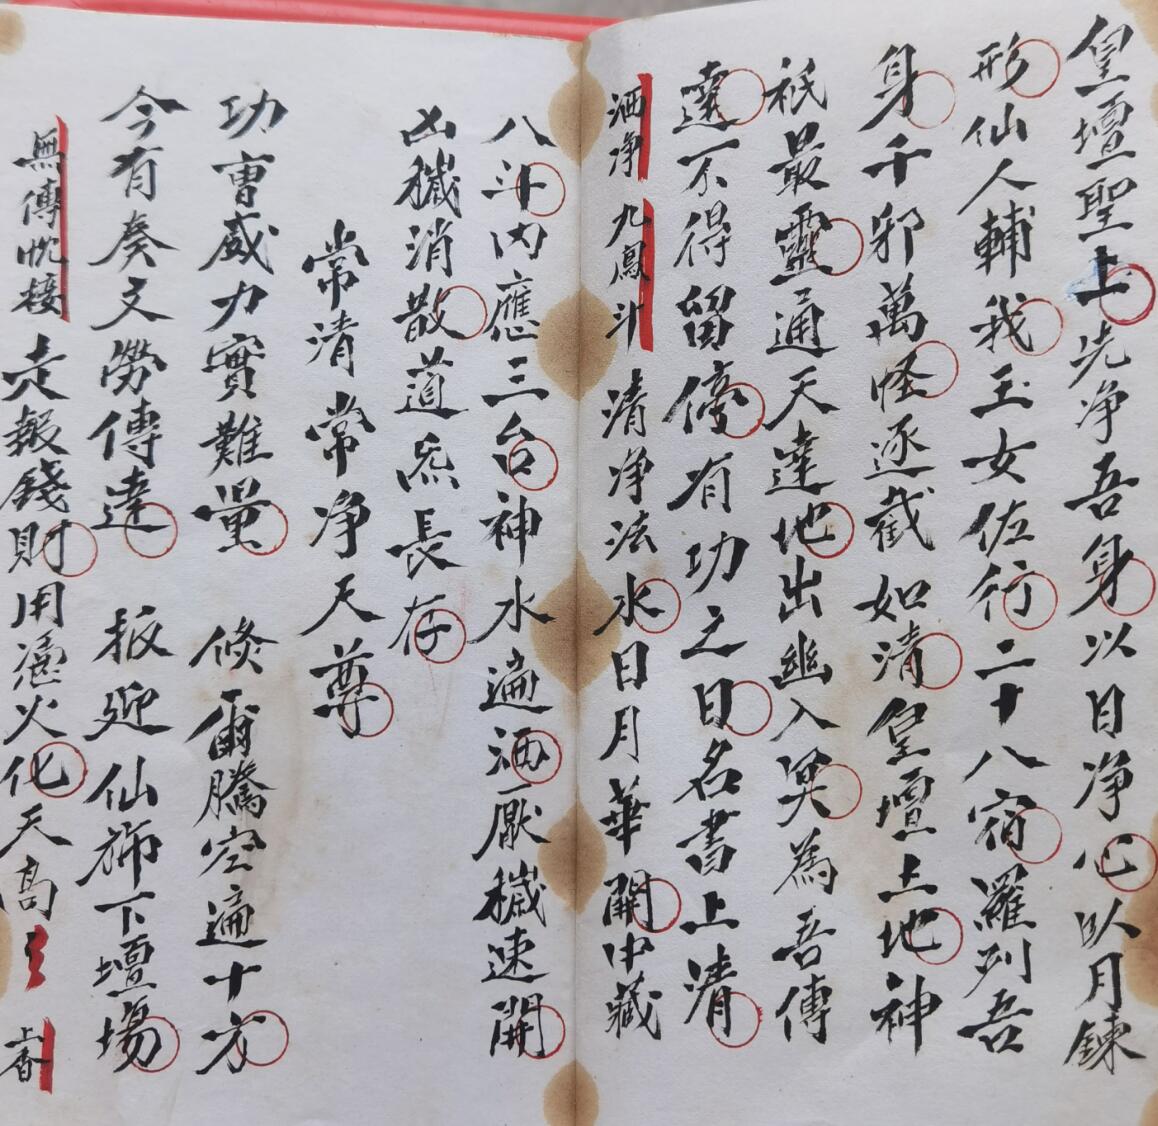 皇壇聖上先净吾身以日净心以月鍊
形仙人輔我玉女佐行二十八宿羅列吾
身千邪萬怪逐截如清皇壇土地神
祇最靈通天達地出幽入冥為吾傳
達不得留停有功之日名書上清
洒净 九鳳斗 清净法水日月華開中藏
八斗内應三台神水遍洒厭穢速開
凶穢消散道炁長存
常清常净天尊
功曹威力實難量 倏爾騰空遍十方
今有奏文勞傳達 扳迎仙斾下壇場
無傳忱接 走報錢財用憑火化天高 上香